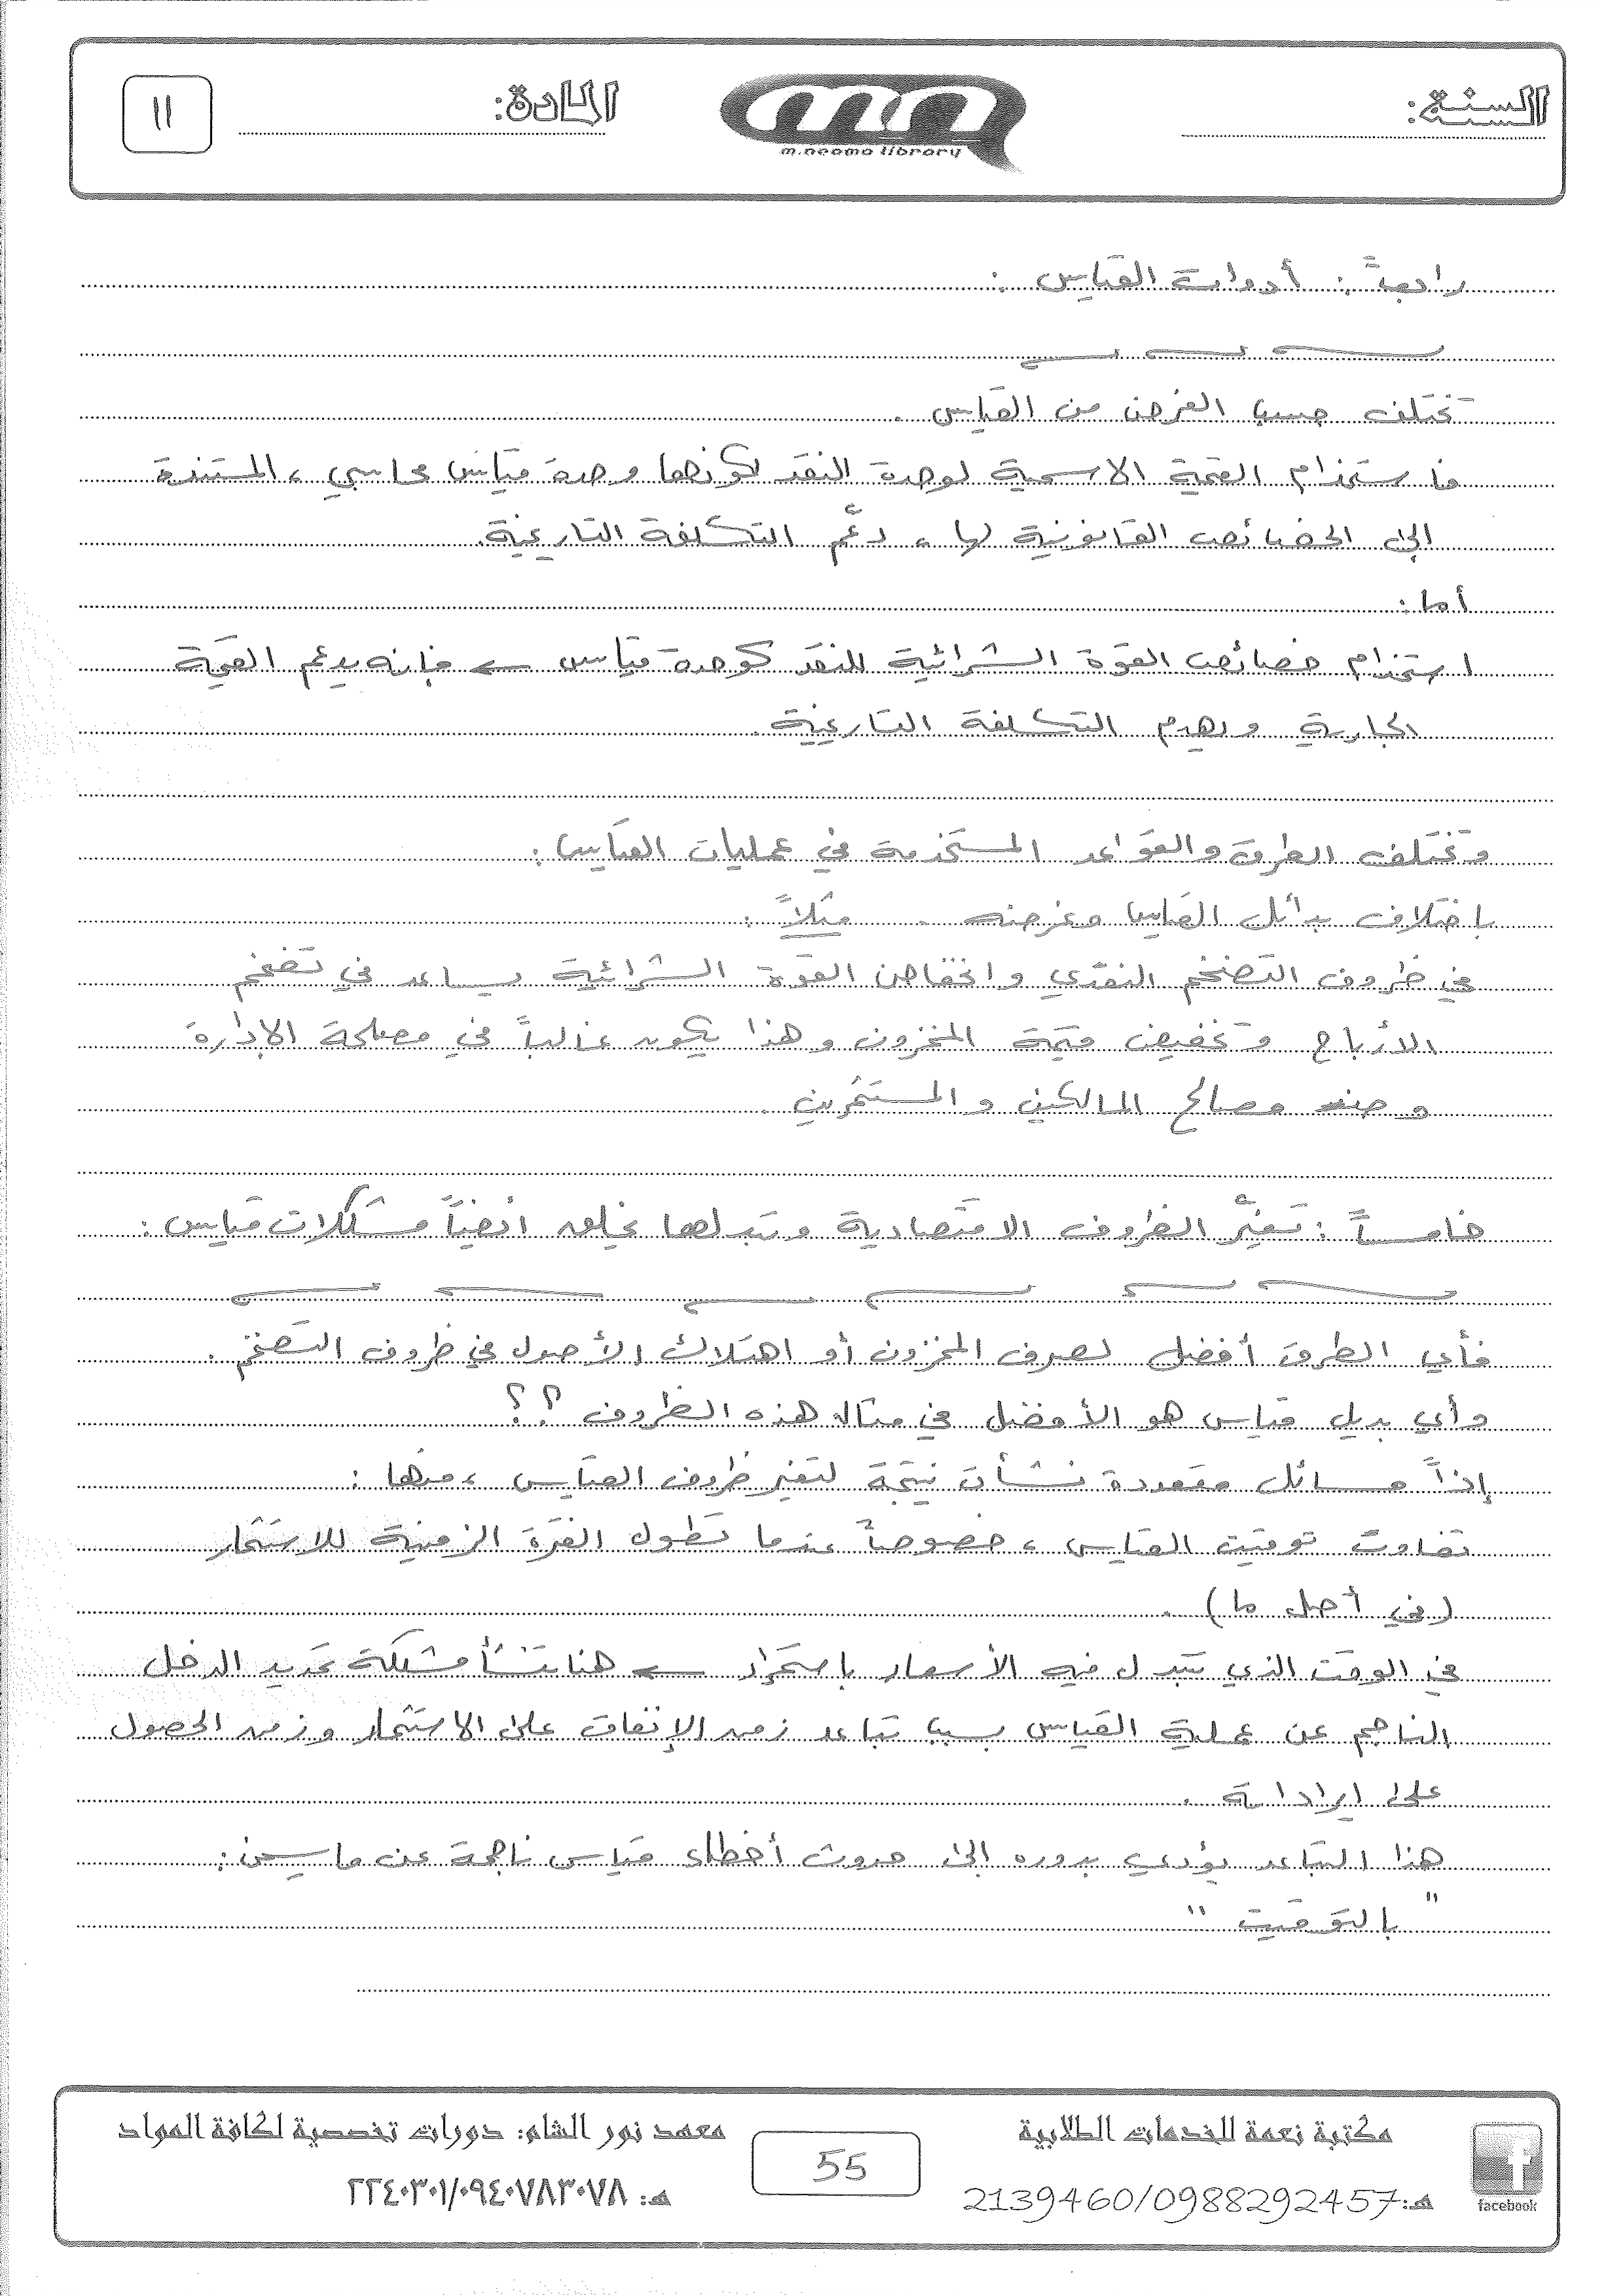 السنة:
m.neoma library
المادة:
١١
رابعاً : أدوات القياس :
تختلف حسب الغرض من القياس .
فاستخدام القيمة الاسمية لوحدة النقد لكونها وحدة قياس محاسبي ، المستندة
إلى الخصائص القانونية لها ، دعّم التكلفة التاريخية.
أما :
استخدام خصائص القوة الشرائية للنقد كوحدة قياس ← فإنه يدعم القيمة
الجارية ويهدم التكلفة التاريخية .
وتختلف الطرق والقواعد المستخدمة في عمليات القياس :
باختلاف بدائل القياس وغرضه . مثلاً :
في ظروف التضخم النقدي وانخفاض القوة الشرائية يساعد في تضخم
الأرباح وتخفيض قيمة المخزون وهذا يكون غالباً في مصلحة الإدارة
وضد مصالح المالكين والمستثمرين .
خامساً : تغيّر الظروف الاقتصادية وتبدلها يخلق أيضاً مشكلات قياس :
فأي الطرق أفضل لصرف المخزون أو اهتلاك الأصول في ظروف التضخم .
وأي بديل قياس هو الأفضل في مثال هذه الظروف ؟؟
إذاً مسائل متعددة نشأت نتيجة لتغير ظروف القياس ، منها :
تفاوت توقيت القياس ، خصوصاً عندما تطول الفترة الزمنية للاستثمار
(في أصل ما) .
في الوقت الذي تتبدل فيه الأسعار باستمرار ← هنا تنشأ مشكلة تحديد الدخل
الناجم عن عملية القياس بسبب تباعد زمن الإنفاق على الاستثمار وزمن الحصول
على ايراداته .
هذا التباعد يؤدي بدوره إلى حدوث أخطاء قياس ناجمة عن ما يسمى :
" بالتوقيت "
مكتبة نعمة للخدمات الطلابية
هـ:2139460/0988292457
facebook
55
معهد نور الشام: دورات تخصصية لكافة المواد
هـ: ٢٢٤٠٣٠١/٠٩٤٠٧٨٣٠٧٨